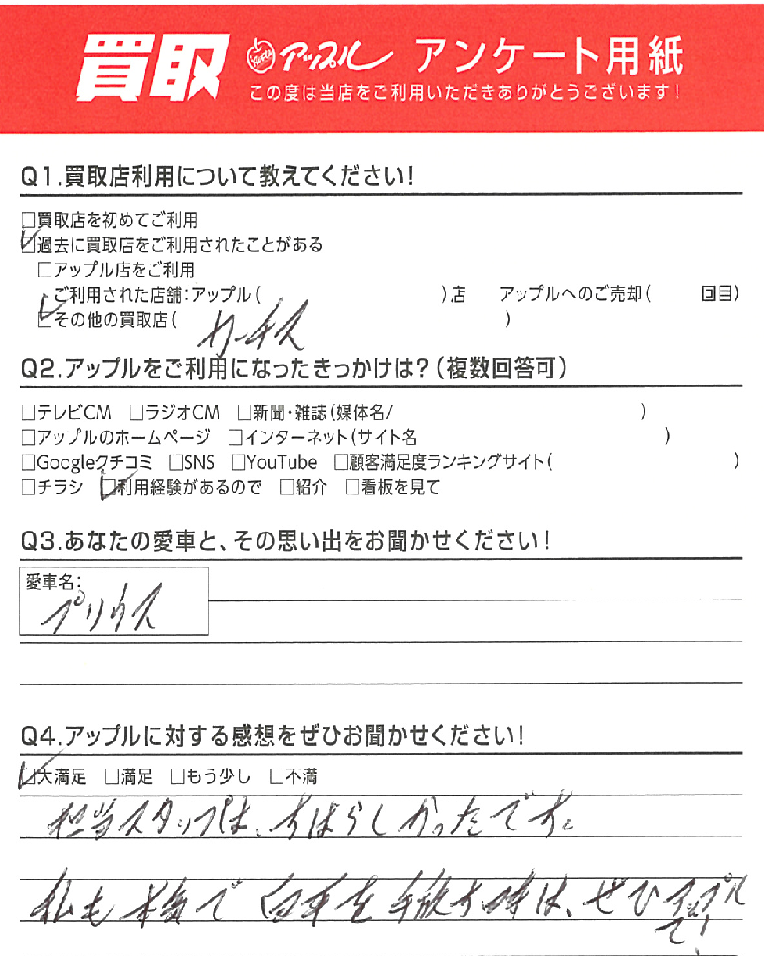 買取 アップル アンケート用紙
この度は当店をご利用いただきありがとうございます!
Q1.買取店利用について教えてください!
□買取店を初めてご利用
☑過去に買取店をご利用されたことがある
□アップル店をご利用
ご利用された店舗:アップル( )店 アップルへのご売却( 回目)
☑その他の買取店( カーチス )
Q2.アップルをご利用になったきっかけは?(複数回答可)
□テレビCM □ラジオCM □新聞・雑誌(媒体名/ )
□アップルのホームページ □インターネット(サイト名 )
□Googleクチコミ □SNS □YouTube □顧客満足度ランキングサイト( )
□チラシ ☑利用経験があるので □紹介 □看板を見て
Q3.あなたの愛車と、その思い出をお聞かせください!
愛車名:
プリウス
Q4.アップルに対する感想をぜひお聞かせください!
☑大満足 □満足 □もう少し □不満
担当スタッフは、すばらしかったです。
私も で 車を手放す時は、ぜひアップル
で!